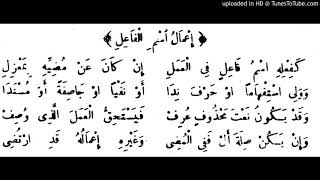 uploaded in HD @ TunesToTube.com
﴿ إِعْمَالُ اسْمِ الْفَاعِلِ ﴾
كَفِعْلِهِ اسْمُ فَاعِلٍ فِي الْعَمَلِ إِنْ كَانَ عَنْ مُضِيِّهِ بِمَعْزِلِ
وَوَلِيَ اسْتِفْهَامًا اوْ حَرْفَ نِدَا اوْ نَفْيًا اوْ جَاصِفَةً اوْ مُسْنَدَا
وَقَدْ يَكُونُ نَعْتَ مَحْذُوفٍ عُرِفْ فَيَسْتَحِقُّ الْعَمَلَ الَّذِي وُصِفْ
وَإِنْ يَكُنْ صِلَةَ أَلْ فَفِي الْمُضِي وَغَيْرِهِ إِعْمَالُهُ قَدِ ارْتُضِي